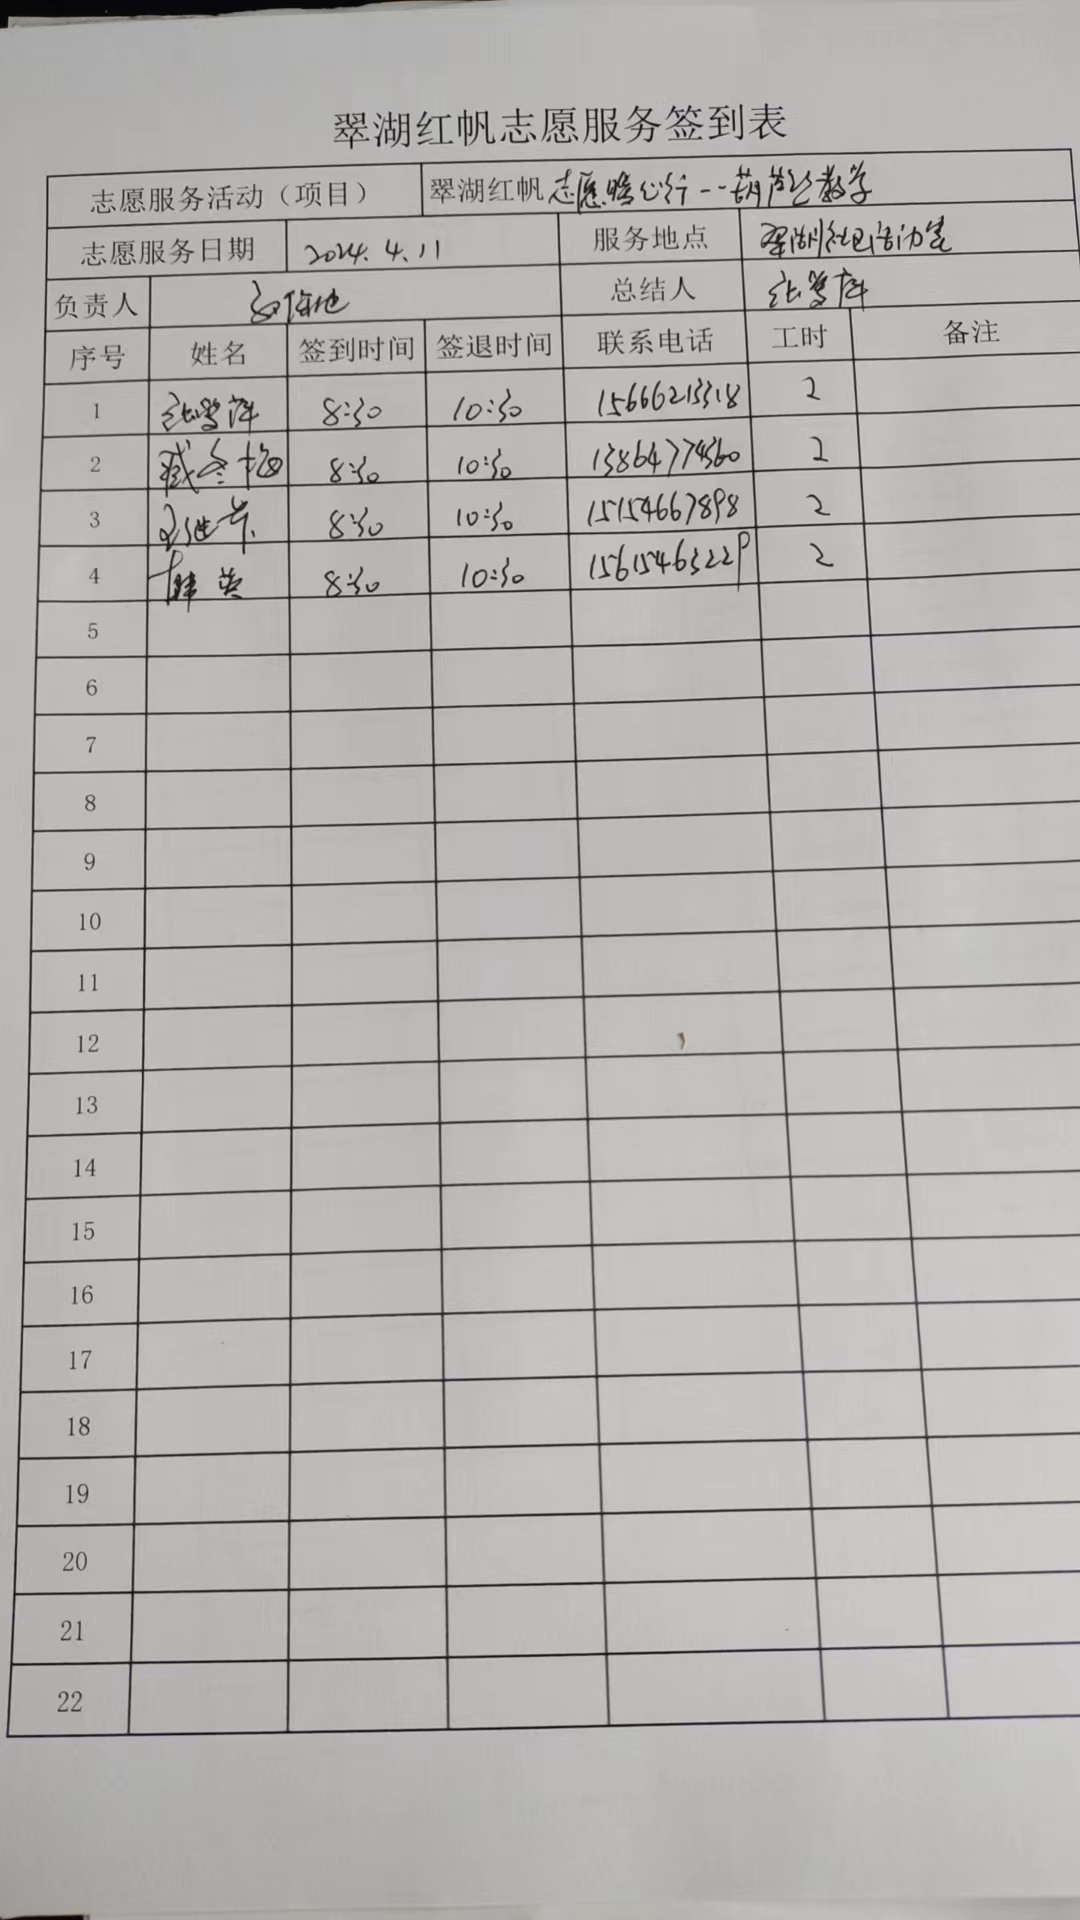 翠湖红帆志愿服务签到表
志愿服务活动（项目） 翠湖红帆志愿暖心行--葫芦丝教学
志愿服务日期 2024.4.11 服务地点 翠湖社区活动室
负责人 总结人
序号 姓名 签到时间 签退时间 联系电话 工时 备注
1 8:30 10:30 15666213318 2
2 臧冬梅 8:30 10:30 13864774360 2
3 8:30 10:30 15154667898 2
4 韩英 8:30 10:30 15615463229 2
5
6
7
8
9
10
11
12
13
14
15
16
17
18
19
20
21
22